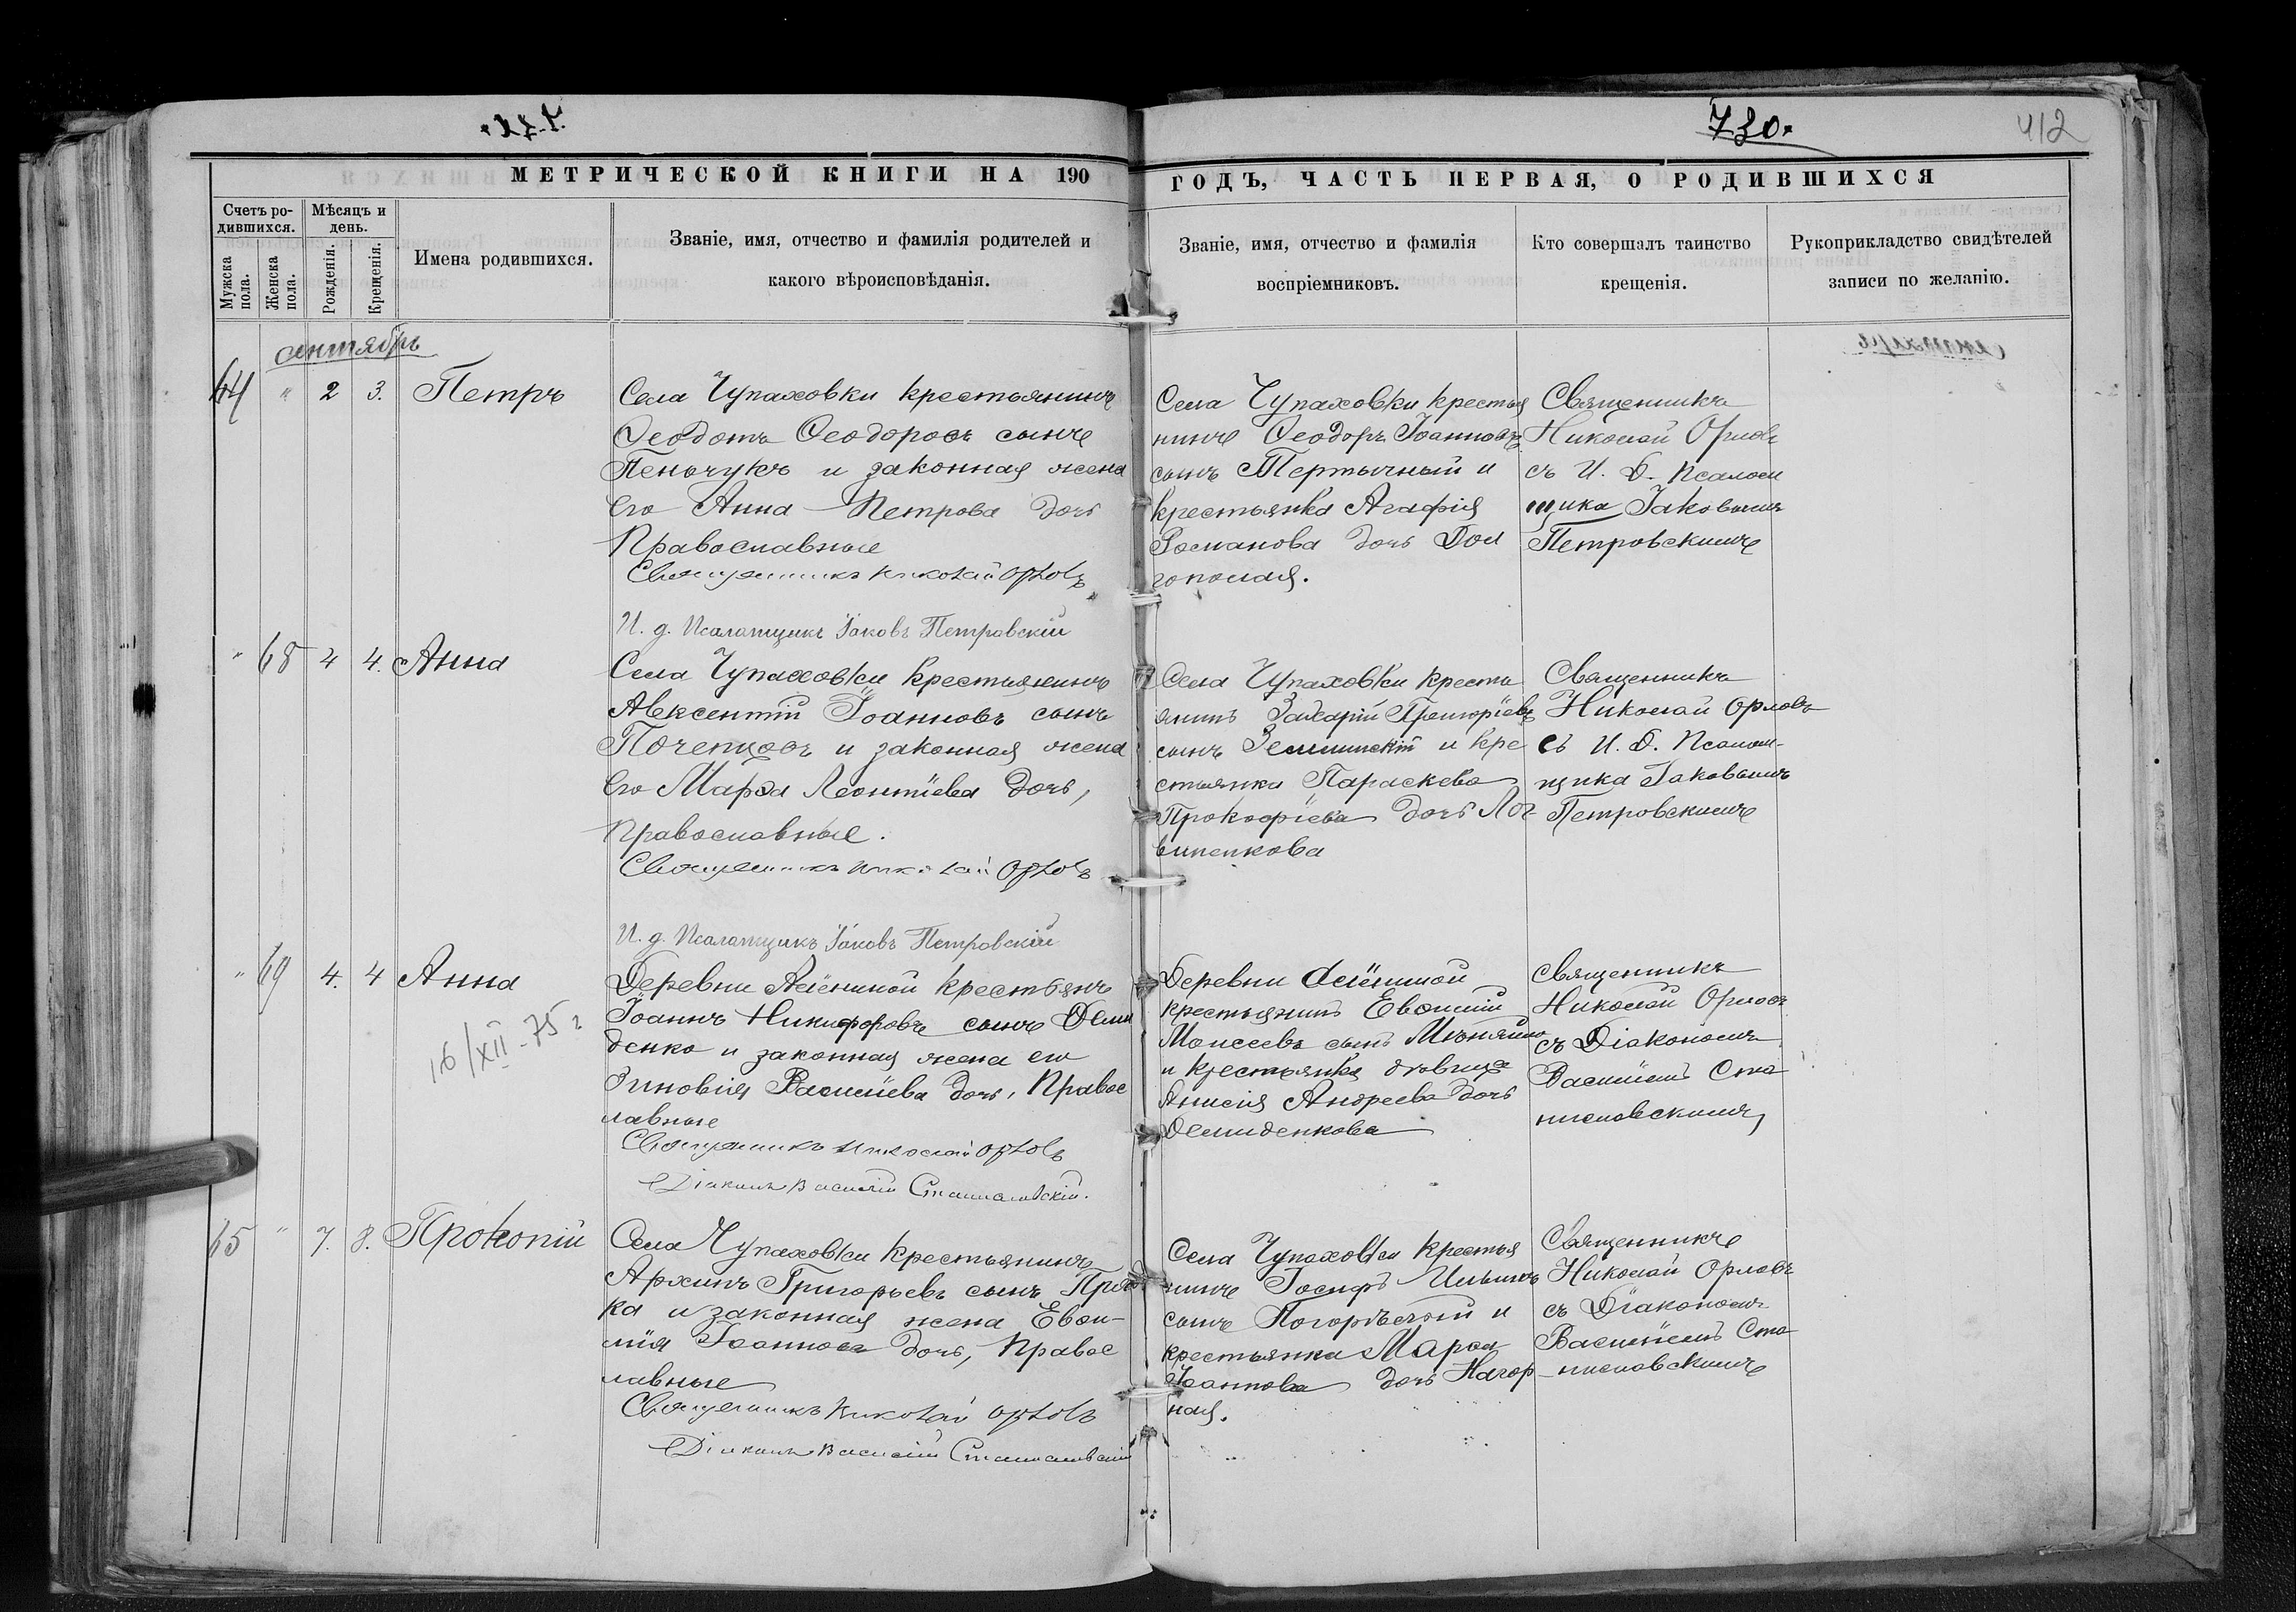 730.
412
МЕТРИЧЕСКОЙ КНИГИ НА 190
ГОДЪ, ЧАСТЬ ПЕРВАЯ, О РОДИВШИХСЯ
Счетъ ро-
дившихся.
Мѣсяцъ и
день.
Мужска
пола.
Женска
пола.
Рожденія.
Крещенія.
Имена родившихся.
Званіе, имя, отчество и фамилія родителей и
какого вѣроисповѣданія.
Званіе, имя, отчество и фамилія
воспріемниковъ.
Кто совершалъ таинство
крещенія.
Рукоприкладство свидѣтелей
записи по желанію.
сентябрь
64 " 2 3. Петръ
Села Чупаховки крестьянинъ
Ѳеодотъ Ѳеодоровъ сынъ
и законная жена
его Анна Петрова дочь
Православные
Священникъ Николай Орловъ
И. д. Псаломщикъ Іаковъ Петровскій
Села Чупаховки крестья
нинъ Ѳеодоръ Іоанновъ
сынъ Тертычный и
крестьянка Агафія
Романова дочь Дол
гополая.
Священникъ
Николай Орловъ
съ И. Д. Псалом
щика Іаковымъ
Петровскимъ
" 68 4 4. Анна
Села Чупаховки крестьянинъ
Авксентій Іоанновъ сынъ
Поченцовъ и законная жена
его Марѳа Леонтіева дочь,
Православные.
Священникъ Николай Орловъ
И. д. Псаломщикъ Іаковъ Петровскій
Села Чупаховки кресть
янинъ Захарій Григоріевъ
сынъ и кре
стьянка Параскева
Прокофіева дочь Лог
виненкова
Священникъ
Николай Орловъ
съ И. Д. Псалом-
щика Іаковымъ
Петровскимъ
" 69 4. 4 Анна
16/XII-75 г
Деревни крестьянъ
Іоаннъ Никифоровъ сынъ Деми
денко и законная жена его
Зиновія Василіева дочь, Правос
лавные
Священникъ Николай Орловъ
Діаконъ Василій Станиславскій.
Деревни
крестьянинъ Евѳимій
Моисеевъ сынъ
и крестьянка дѣвица
Анисія Андреева дочь
Демиденкова
Священникъ
Николай Орловъ
съ Діакономъ
Василіемъ Ста
ниславскимъ
65 " 7. 8. Прокопій
Села Чупаховки крестьянинъ
Архипъ Григорьевъ сынъ
ка и законная жена Евѳи-
мія Іоаннова дочь, Правос
лавные
Священникъ Николай Орловъ
Діаконъ Василій Станиславскій
Села Чупаховки крестья
нинъ Іосифъ Ильинъ
сынъ Погорѣлый и
крестьянка Марѳа
Іоаннова дочь Нагор
ная.
Священникъ
Николай Орловъ
съ Діакономъ
Василіемъ Ста
ниславскимъ